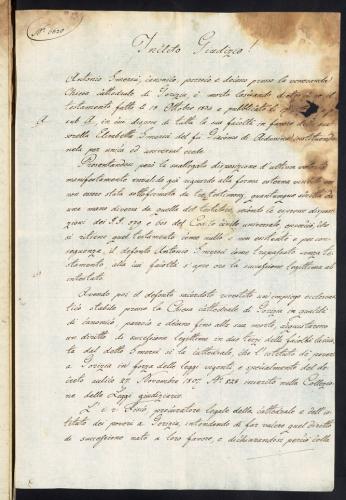 N. 6620
Inclito Giudizio!
Antonio Smerzi, canonico, parroco e decano presso la venerenda
Chiesa cattedrale di Gorizia, è morto lasciando
testamento fatto li 19 Ottobre 1834 e pubblicato
sub A, in cui dispone di tutta la sua facoltà in favore
sorella Elisabetta Smerzi del fu Giacomo di
nola per unica ed universal erede.
A
Presentandosi però la mallegata disposizione d'ultima volontà
manifestamente invalida già riguardo alla forma esterna
non essere stata sottofirmata da tre testimonj, quantunque scritta da
una mano diversa da quella del testatore, secondo le
zioni dei §.§. 579 e 601 del Codice civile universale,
si ritiene quel testamento come nullo e non esistente e per con-
seguenza, il defunto Antonio Smerzi come trapassato senza te-
stamento, alla cui facoltà s'apre ora la successione legittima ab
intestato.
Avendo poi il defunto sacerdote rivestito un impiego ecclesia-
stico stabile presso la Chiesa cattedrale di Gorizia in qualità
di canonico, parroco e decano fino alla sua morte, acquistarono
un diritto di successione legittima in due terzi della facoltà
ta dal detto Smerzi sì la cattedrale, che l'istituto de' poveri
a Gorizia in forza delle leggi vigenti e specialmente del de-
creto aulico 27 Novembre 1807 N. 828 inserito nella Collezio-
ne delle Leggi giudiziarie.
L'i. r. Fisco, procuratore legale della cattedrale e dell'i-
stituto dei poveri a Gorizia, intendendo di far valere quel diritto
di successione nato a loro favore, e dichiarandosi perciò colla